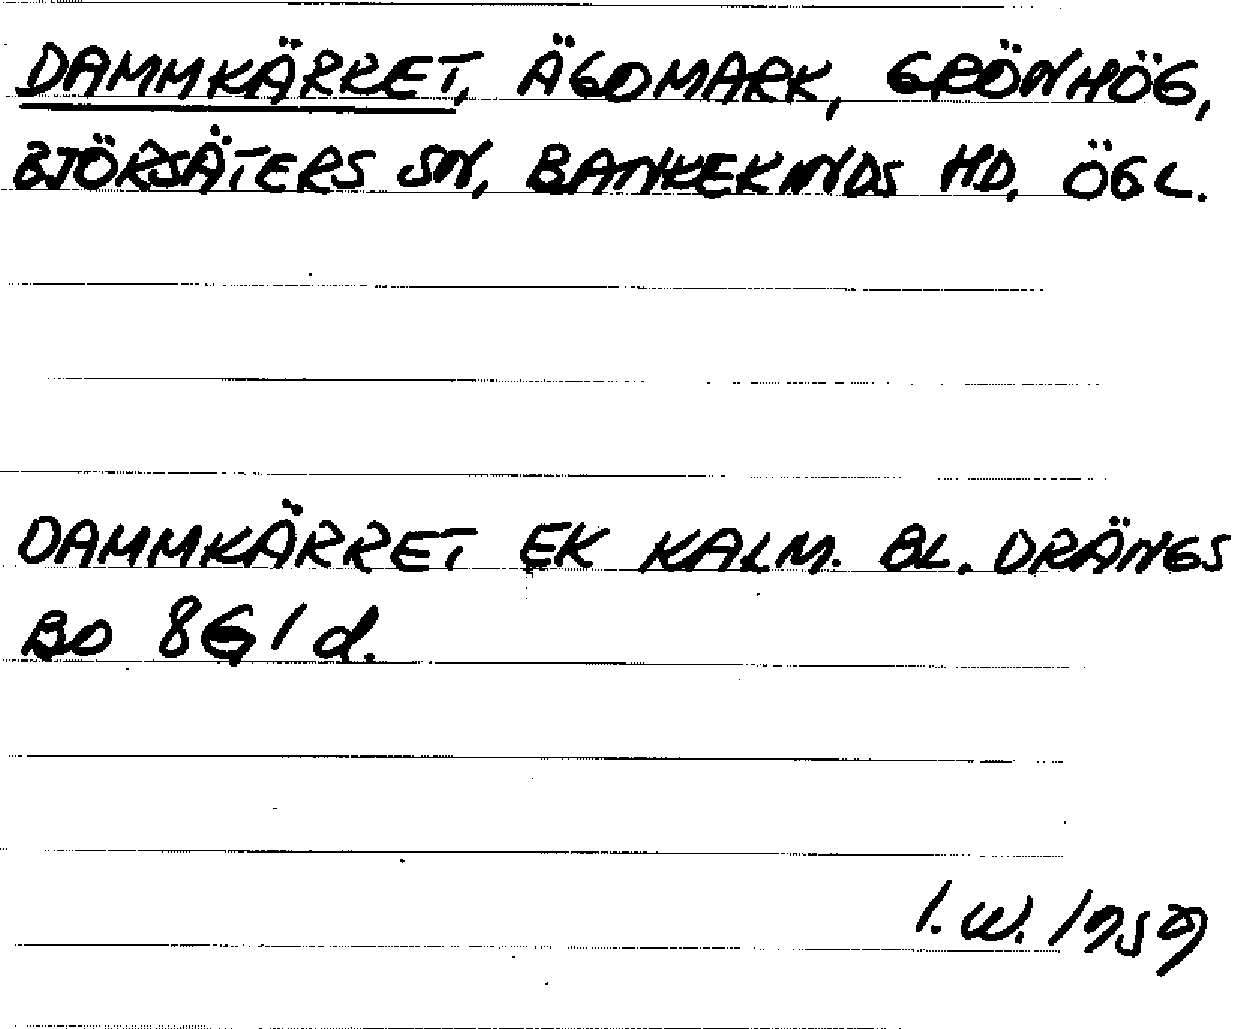 DAMMKÄRRET, ÄGOMARK, GRÖNHÖG,
BJÖRSÄTERS SN, BANKEKINDS HD, ÖGL.
DAMMKÄRRET EK KALM. BL. DRÄNGS
BO 8G1d.
I.W. 1959